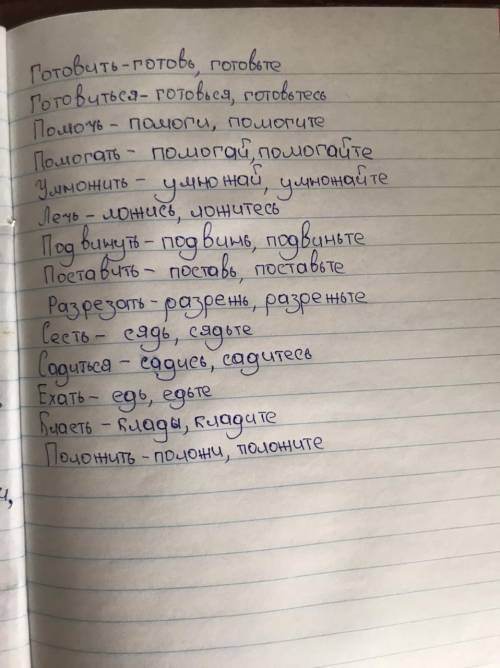 Готовить-готовь, готовьте
Готовиться-готовься, готовьтесь
Помочь - помоги, помогите
Помогать - помогай, помогайте
Умножить - умножай, умножайте
Лечь - ложись, ложитесь
Подвинуть - подвинь, подвиньте
Поставить - поставь, поставьте
Разрезать - разрежь, разрежьте
Сесть - сядь, сядьте
Садиться - садись, садитесь
Ехать - едь, едьте
Класть - клады, кладите
Положить - положи, положите